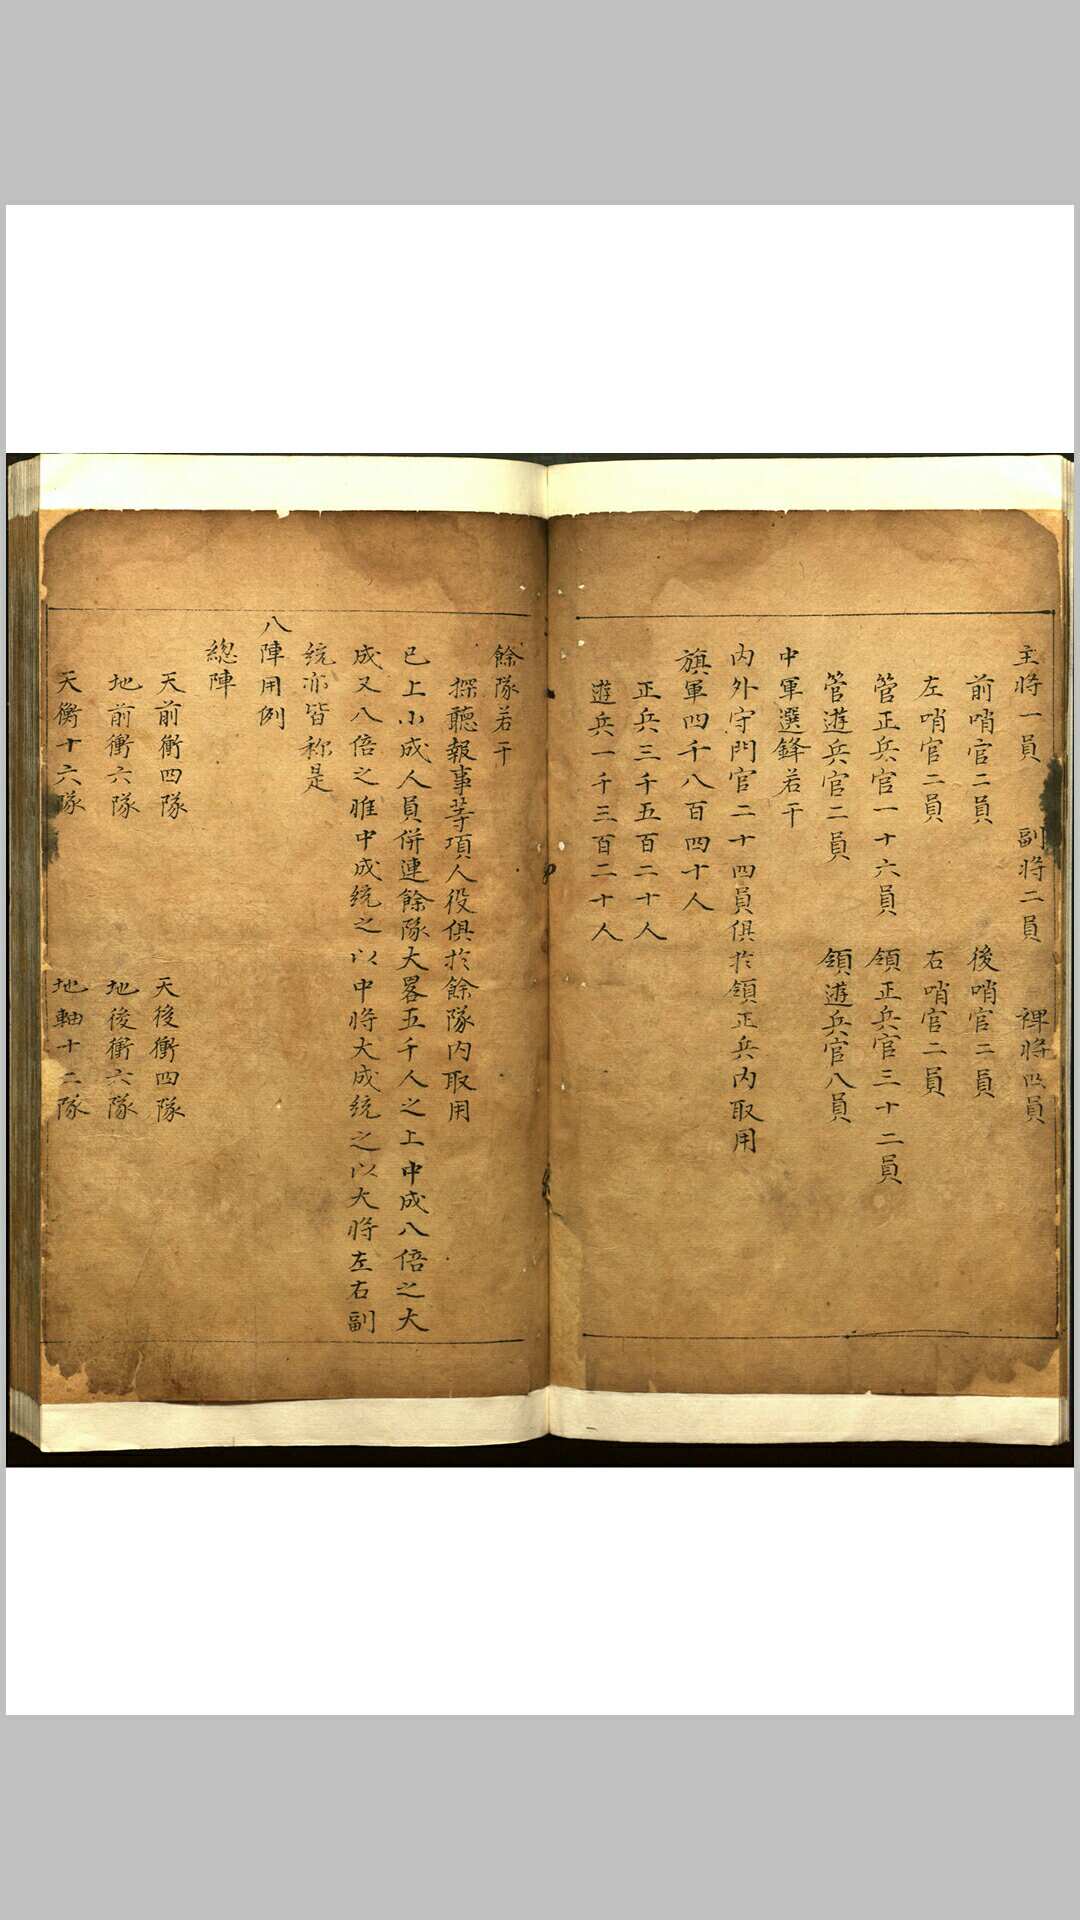 主將一員　副將二員　裨將四員
前哨官二員　後哨官二員
左哨官二員　右哨官二員
管正兵官一十六員　領正兵官三十二員
管遊兵官二員　領遊兵官八員
中軍選鋒若干
內外守門官二十四員俱扵領正兵內取用
旗軍四千八百四十人
正兵三千五百二十人
遊兵一千三百二十人
餘隊若干
探聽報事等項人役俱扵餘隊內取用
已上小成人員併連餘隊大畧五千人之上中成八倍之大
成又八倍之惟中成統之以中將大成統之以大將左右副
統亦皆称是
八陣用例
總陣
天前衝四隊　天後衝四隊
地前衝六隊　地後衝六隊
天衡十六隊　地軸十二隊